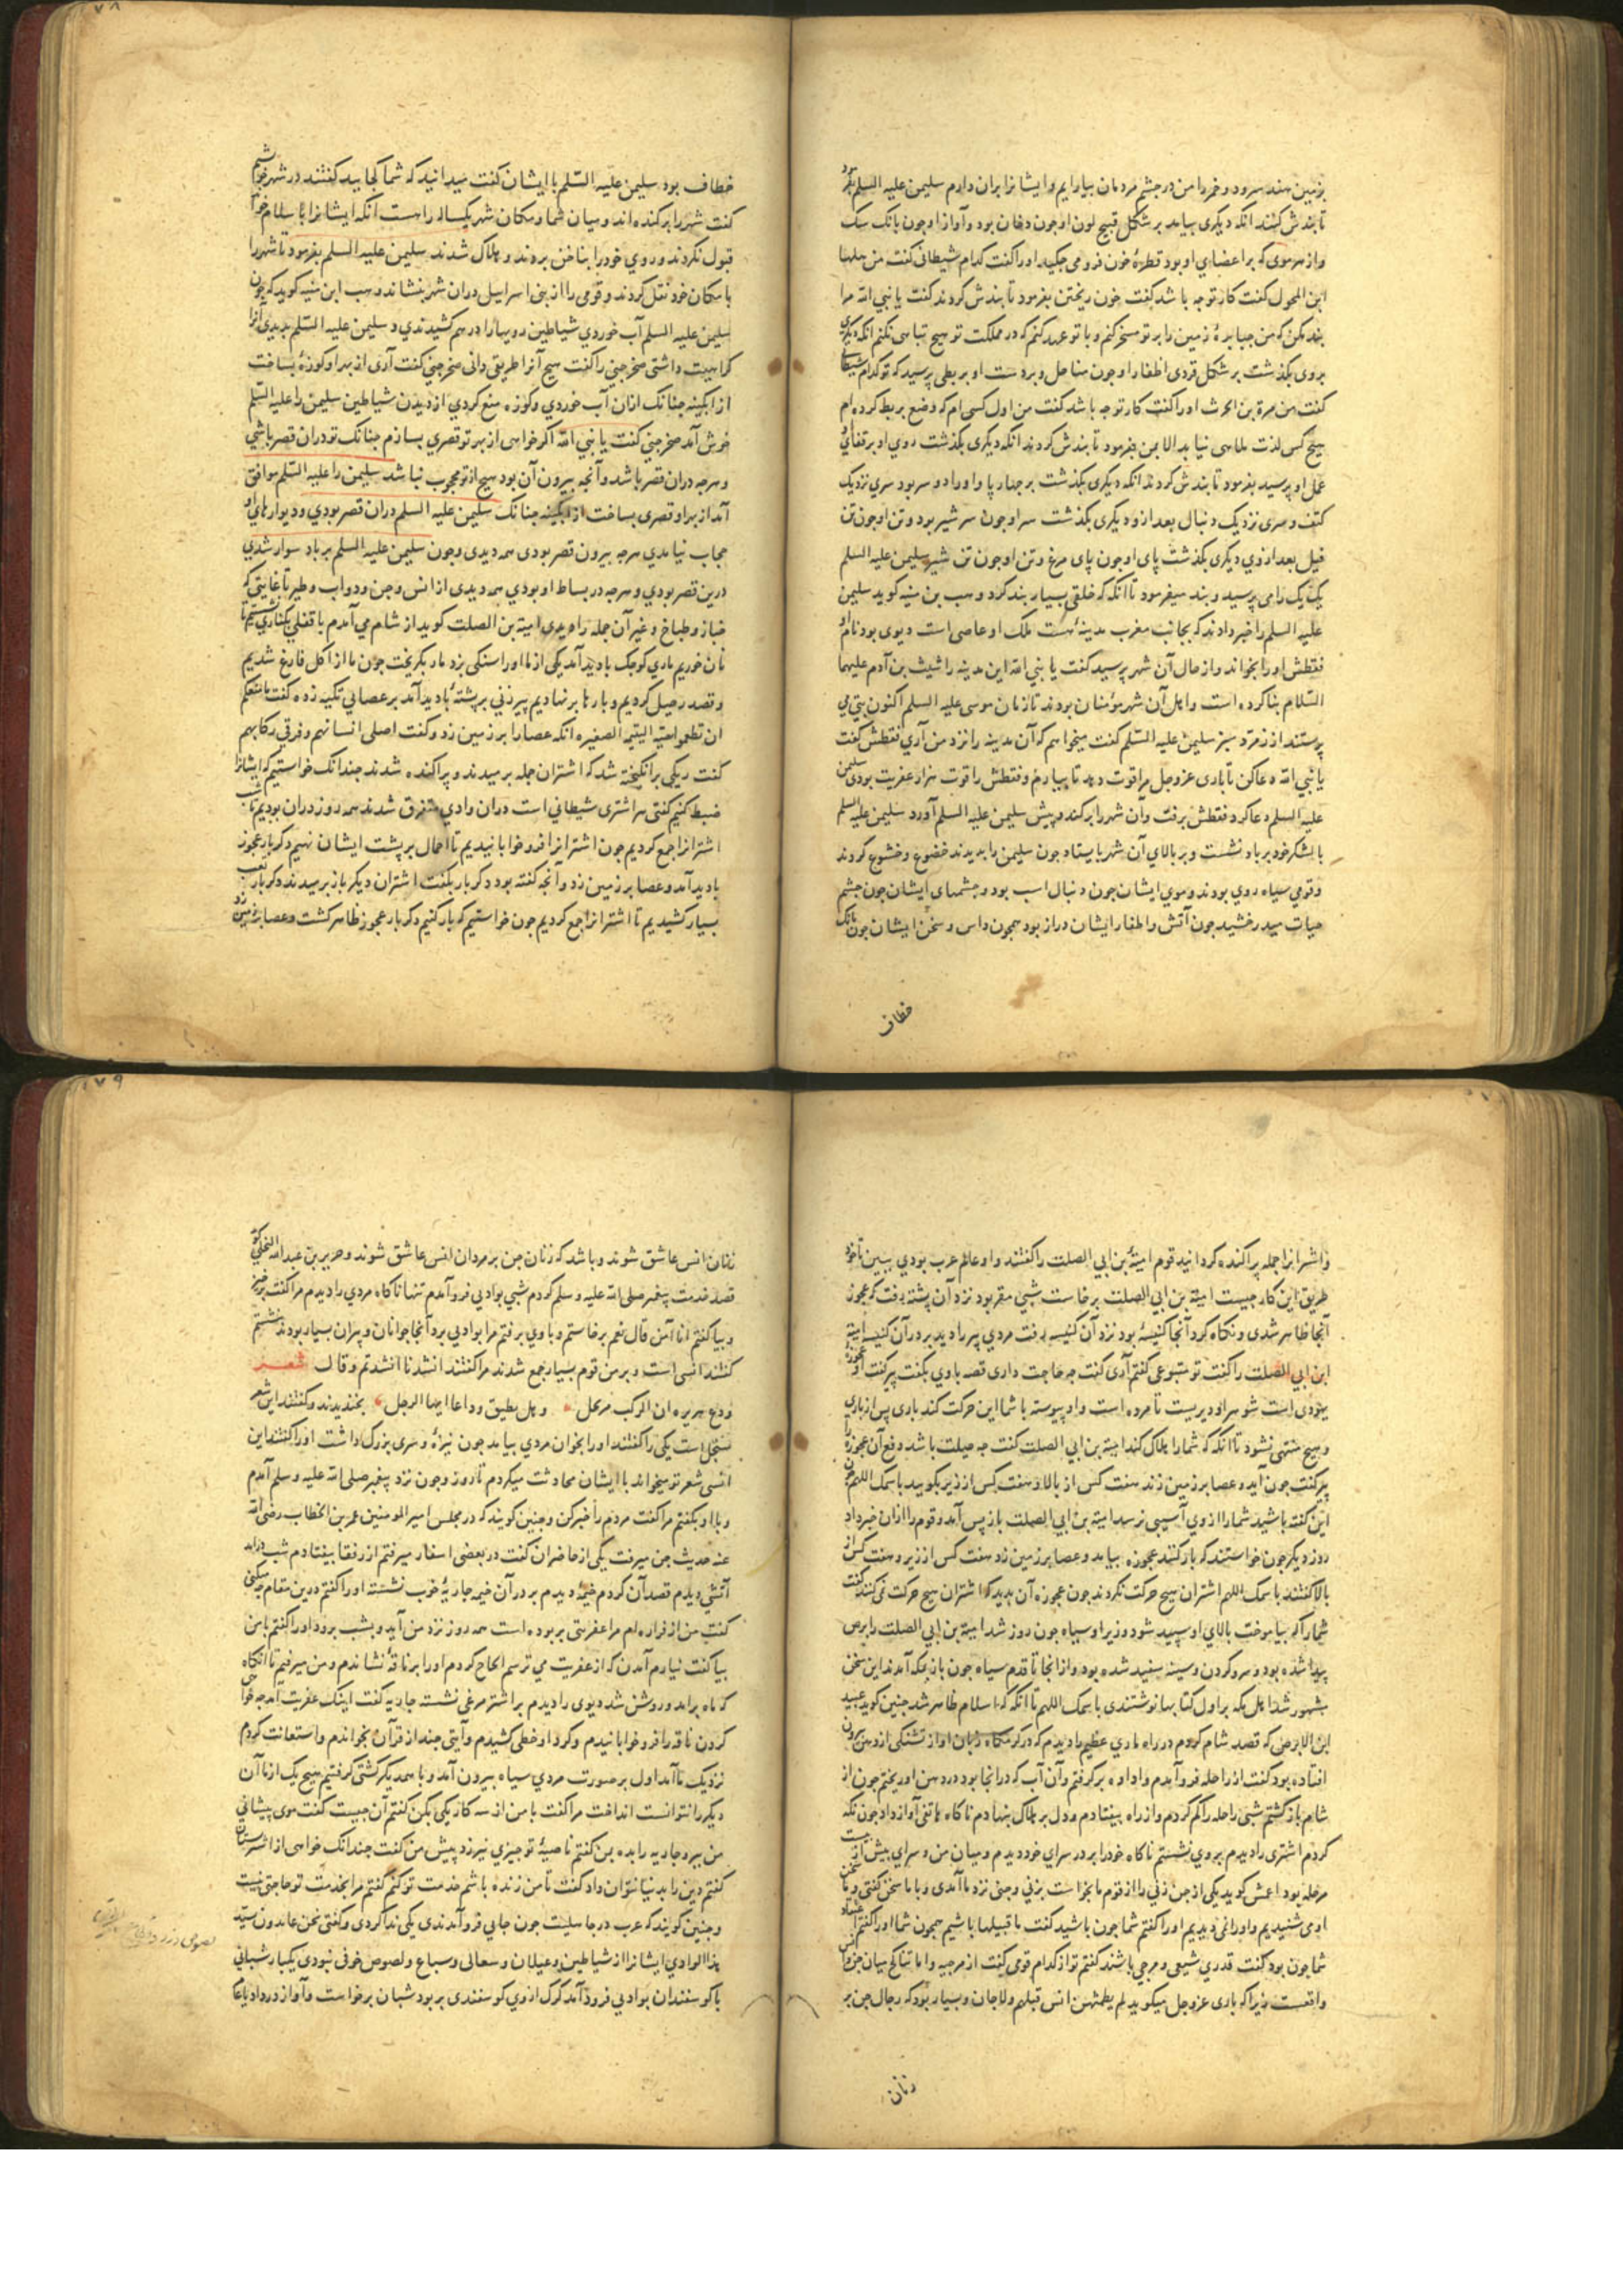 بزمین هند سرود و خمر را من در چشم مردمان بیارایم و ایشانرا بران دارم سلیمن علیه السلم بفرمود
تا بندش کنند انکه دیکری بیامد بر شکل قبیح لون او جون دخان بود و آواز او جون بانک سک
و از هر موی که بر اعضای او بود قطرهٔ خون فرو می جکید او را کفت کدام شیطانی کفت من
ابن المحول کفت کار تو جه باشد کفت خون ریختن بفرمود تا بندش کردند کفت یا نبی الله مرا
بند مکن که من جبابرهٔ زمین را بر تو مسخر کنم و با تو عهد کنم که در مملکت تو هیج تباهی نکنم انکه دیکری
بروی بکذشت بر شکل قردی اظفار او جون مناجل و بر دست او بربطی پرسید که تو کدام شیطانی
کفت من مرة بن الحرث او را کفت کار تو جه باشد کفت من اول کسی ام که وضع بربط کرده ام
هیج کس لذت ملاهی نیابد الا بمن بفرمود تا بندش کردند انکه دیکری بکذشت روی او بر قفای
عمل او پرسید بفرمود تا بندش کردند انکه دیکری بکذشت بر جهار پا و او را دو سر بود سری نزدیک
کتف و سری نزدیک دنبال بعد ازو دیکری بکذشت سر او جون سر شیر بود و تن او جون تن
فیل بعد از وی دیکری بکذشت پای او جون پای مرغ و تن او جون تن شیر سلیمن علیه السلم
یک یک را می پرسید و بند میفرمود تا انکه که خلقی بسیار بند کرد وهب بن منبه کوید سلیمن
علیه السلم را خبر دادند که بجانب مغرب مدینه هست ملک او عاصی است دیوی بود نام او
فقطش او را بخواند و از حال آن شهر پرسید کفت یا نبی الله این مدینه را شیث بن آدم علیهما
السلام بنا کرده است و اهل آن شهر مومنان بودند تا زمان موسی علیه السلم اکنون بتی می
پرستند از زمرد سبز سلیمن علیه السلم کفت میخواهم که آن مدینه را نزد من آری فقطش کفت
یا نبی الله دعا کن تا باری عزوجل مرا قوت دهد تا بیارم و فقطش را قوت هزار عفریت بودی سلیمن
علیه السلم دعا کرد فقطش برفت و آن شهر را برکند و پیش سلیمن علیه السلم آورد سلیمن علیه السلم
با لشکر خود بر باد نشست و بر بالای آن شهر بایستاد جون سلیمن را بدیدند خضوع و خشوع کردند
و قومی سیاه روی بودند و موی ایشان جون دنبال اسب بود و جشمهای ایشان جون جشم
حیات میدرخشید جون آتش و اظفار ایشان دراز بود همجون داس و سخن ایشان جون بانک
خطاف
خطاف بود سلیمن علیه السلم با ایشان کفت میدانید که شما کجایید کفتند در شهر خودیم
کفت شهر را برکنده اند و میان شما و مکان شهر یکساله راهست انکه ایشانرا با سلام خواند
قبول نکردند و روی خود را بناخن بروند و هلاک شدند سلیمن علیه السلم بفرمود تا شهر را
با مکان خود نقل کردند و قومی را از بنی اسراییل دران شهر بنشاند وهب ابن منبه کوید که جون
سلیمن علیه السلم آب خوردی شیاطین رویها را درهم کشیدندی و سلیمن علیه السلم بدیدی انرا
کراهیت داشتی صخر جنی را کفت هیج آنرا طریقی دانی صخر جنی کفت آری از بهر او کوزهٔ بساخت
از ابکینه جنانک ازان آب خوردی و کوزه منع کردی از دیدن شیاطین سلیمن را علیه السلم
خوش آمد صخر جنی کفت یا نبی الله اکر خواهی از بهر تو قصری بسازم جنانک تو دران قصر باشی
و هرجه دران قصر باشد و آنجه بیرون آن بود هیج از تو محجوب نباشد سلیمن را علیه السلم موافق
آمد از بهر او قصری بساخت از ابکینه جنانک سلیمن علیه السلم دران قصر بودی و دیوارهای او
حجاب نیامدی هرجه بیرون قصر بودی همه دیدی و جون سلیمن علیه السلم بر باد سوار شدی
درین قصر بودی و هرجه در بساط او بودی همه دیدی از انس و جن و دواب و طیر تا غایتی که
خباز و طباخ و غیر آن جمله را دیدی امیة بن الصلت کوید از شام می آمدم با قفلی بکناری نشستیم تا
نان خوریم ماری کوجک بادید آمد یکی از ما او را سنکی بزد مار بکریخت جون ما از اکل فارغ شدیم
و قصد رحیل کردیم و بارها برنهادیم پیرزنی بر پشتهٔ بادید آمد بر عصایی تکیه زده کفت ما منعکم
ان تطعموا الیتیمه الصغیره انکه عصا را بر زمین زد و کفت
کفت ریکی برانکیخته شد که اشتران جمله برمیدند و پراکنده شدند جندانک خواستیم که ایشانرا
ضبط کنیم کفتی هر اشتری شیطانی است دران وادی متفرق شدند همه روز دران بودیم تا شب
اشترانرا جمع کردیم جون اشترانرا فرو خوابانیدیم تا احمال بر پشت ایشان نهیم دکر بار عجوز
بادید آمد و عصا بر زمین زد و آنجه کفته بود دکر بار بکفت اشتران دیکر باز برمیدند دکر بار تعب
بسیار کشیدیم تا اشترانرا جمع کردیم جون خواستیم که بار کنیم دکر بار عجوز ظاهر کشت و عصا بر زمین زد
و اشترانرا جمله پراکنده کردانید قوم امیهٔ بن ابی الصلت را کفتند و او عالم عرب بودی ببین تا خود
طریق این کار جیست امیة بن ابی الصلت برخاست شبی مقمر بود نزد آن پشته رفت که عجوز
آنجا ظاهر شدی و نکاه کرد آنجا کنیسهٔ بود نزد آن کنیسه رفت مردی پیر را دید بر در آن کنیسه امیة
ابن ابی الصلت را کفت تو متبوعی کفتم آری کفت جه حاجت داری قصه با وی بکفت پیر کفت او عجوزه
یهودی است شوهر او دیریست تا مرده است و او پیوسته با شما این حرکت کند باری پس از باری
و هیج منتهی نشود تا انکه که شما را هلاک کند امیة بن ابی الصلت کفت جه حیلت باشد دفع آن عجوزه را
پیر کفت جون آید و عصا بر زمین زند هفت کس از بالا و هفت کس از زیر بکویید باسمک اللهم جون
این کفته باشید شما را از وی آسیبی نرسد امیة بن ابی الصلت باز پس آمد و قوم را ازان خبر داد
روز دیکر جون خواستند که بار کنند عجوزه بیامد و عصا بر زمین زد هفت کس از زیر و هفت کس از
بالا کفتند باسمک اللهم اشتران هیج حرکت نکردند جون عجوزه آن بدید که اشتران هیج حرکت نمی کنند کفت
شما را که بیاموخت بالای او سپید شود و زیر او سیاه جون روز شد امیة بن ابی الصلت را برص
پیدا شده بود و سر و کردن و سینه سفید شده بود و از انجا تا قدم سیاه جون باز مکه آمدند این سخن
مشهور شد اهل مکه بر اول کتابها نوشتندی باسمک اللهم تا انکه که اسلام ظاهر شد جنین کوید عبید
ابن الابرص که قصد شام کردم در راه ماری عظیم را دیدم که در کرمکاه زبان او از تشنکی از دهن بیرون
افتاده بود کفت از راحله فرو آمدم و اداوه برکرفتم و آن آب که در انجا بود در دهن او ریختم جون از
شام باز کشتم شبی راحله را کم کردم و از راه بیفتادم و دل بر هلاک بنهادم ناکاه هاتفی آواز داد جون نکه
کردم اشتری را دیدم بروی نشستم ناکاه خود را بر در سرای خود دیدم و میان من و سرای بیش از بیست
مرحله بود اعمش کوید یکی از جن زنی را از قوم ما بخواست بزنی و جنی نزد ما آمدی و با ما سخن کفتی و ما سخن
او می شنیدیم و او را نمی دیدیم او را کفتم شما جون باشید کفت ما قبیلها باشیم همجون شما او را کفتم اعتقاد
شما جون بود کفت قدری شیعی و مرجی باشند کفتم تو از کدام قومی کفت از مرجیه و اما تناکح میان جن و انس
واقعست زیرا که باری عزوجل میکوید لم یطمثهن انس قبلهم و لا جان و بسیار بود که رجال جن بر
زنان
زنان انس عاشق شوند و باشد که زنان جن بر مردان انس عاشق شوند و جریر بن عبد الله البجلی کوید
قصد خدمت پیغمبر صلی الله علیه و سلم کردم شبی بوادیی فرو آمدم تنها ناکاه مردی را دیدم مرا کفت برخیز
و بیا کفتم انا آمن قال نعم برخاستم و با وی برفتم مرا بوادیی برد و آنجا جوانان و پیران بسیار بودند بنشستم
کفتند انسی است و بر من قوم بسیار جمع شدند مرا کفتند انشدنا انشدتم و قال شعر
ودع هریره ان الرکب مرتحل و هل تطیق وداعا ایها الرجل بخندیدند و کفتند این شعر
مسحل است یکی را کفتند او را بخوان مردی بیامد جون نیزهٔ و سری بزرک داشت او را کفتند این
انسی شعر تو میخواند با ایشان محادثت میکردم تا روز و جون نزد پیغمبر صلی الله علیه و سلم آمدم
و با او بکفتم مرا کفت مردم را خبر کن و جنین کویند که در مجلس امیر المومنین عمر بن الخطاب رضی الله
عنه حدیث جن میرفت یکی از حاضران کفت در بعضی اسفار میرفتم از رفقا بیفتادم شب درامد
آتشی دیدم قصد آن کردم خیمهٔ دیدم بر در آن خیمه جاریهٔ خوب نشسته او را کفتم درین مقام جه میکنی
کفت من از فزاره ام مرا عفریتی بربوده است همه روز نزد من آید و بشب برود او را کفتم با من
بیا کفت نیارم آمدن که از عفریت می ترسم الحاح کردم او را بر ناقه نشاندم و من میرفتم تا انکاه
که ماه برامد و روشن شد دیوی را دیدم بر اشتر مرغی نشسته جاریه کفت اینک عفریت آمد جه خواهی
کردن ناقه را فرو خوابانیدم و کرد او خطی کشیدم و آیتی جند از قرآن بخواندم و استعانت کردم
نزدیک ما آمد اول بر صورت مردی سیاه بیرون آمد و با همدیکر کشتی کرفتیم هیج یک از ما آن
دیکر را نتوانست انداخت مرا کفت با من از سه کار یکی بکن کفتم آن جیست کفت موی پیشانی
من ببر و جاریه را بده بمن کفتم ناصیهٔ تو جیزی نیرزد پیش من کفت جندانک خواهی از اشتر بستان
کفتم دین را بدنیا نتوان داد کفت تا من زنده باشم خدمت تو کنم کفتم مرا بخدمت تو حاجتی نیست
و جنین کویند که عرب در جاهلیت جون جایی فرو آمدندی یکی ندا کردی و کفتی نحن عائدون بسید
هذا الوادی ایشانرا از شیاطین و غیلان و سعالی و سباع و لصوص خوفی نبودی یکبار شبانی
با کوسفندان بوادیی فرود آمد کرک از وی کوسفندی بربود شبان برخواست و آواز در داد یا عامر